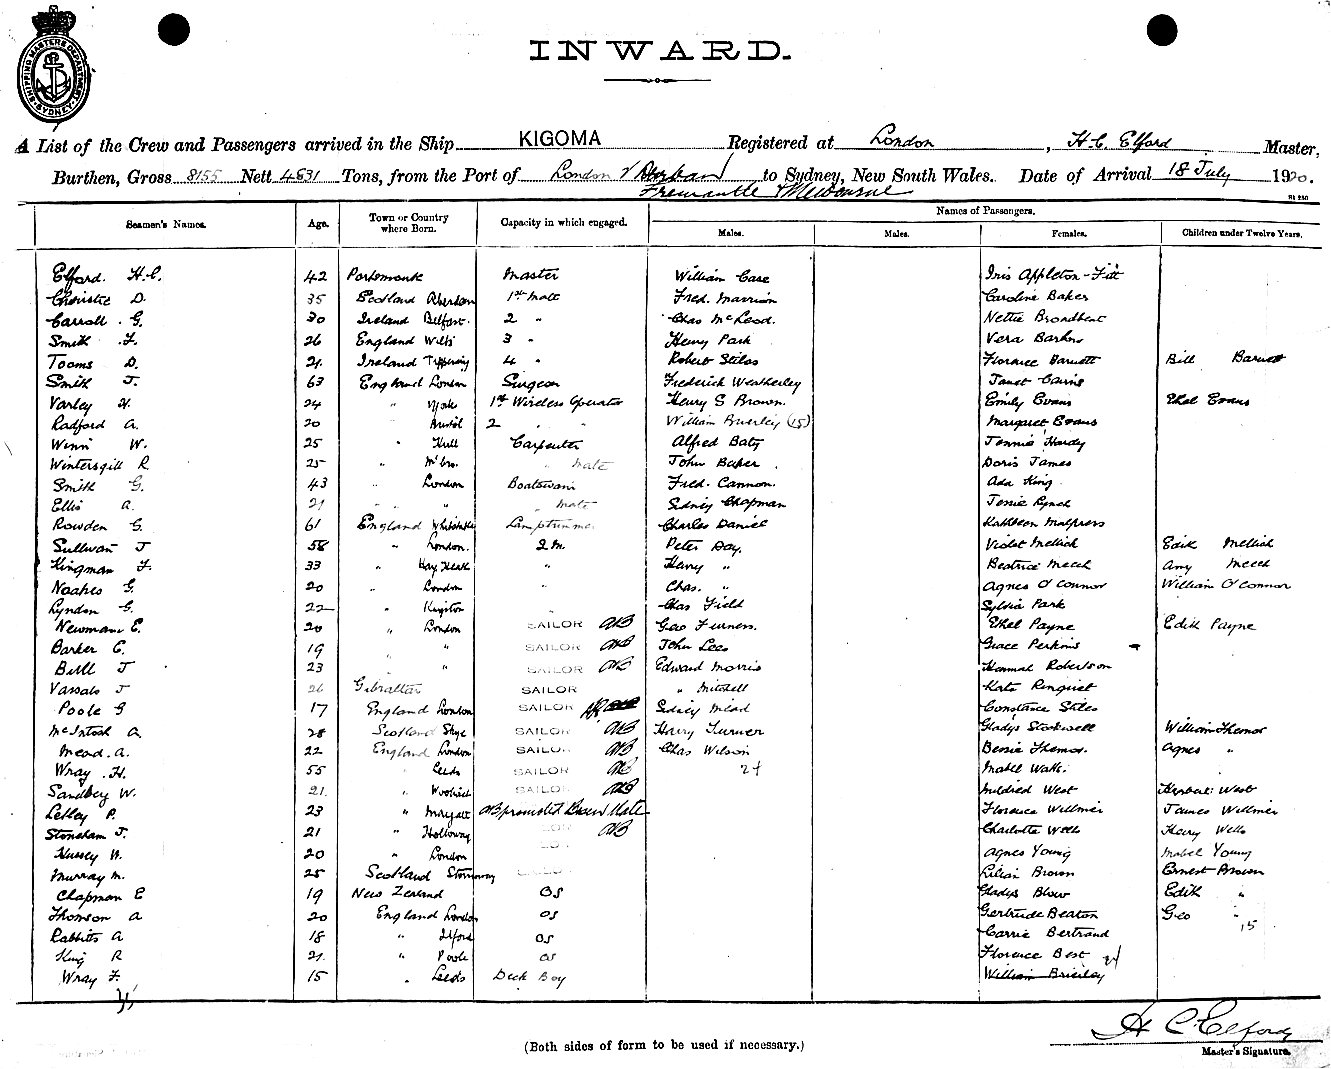 SHIPPING MASTERS DEPARTMENT SYDNEY
INWARD.
A List of the Crew and Passengers arrived in the Ship KIGOMA Registered at London, H. C. Elford Master,
Burthen, Gross 8155 Nett 4831 Tons, from the Port of London & Durban to Sydney, New South Wales. Date of Arrival 18 July 1920.
Fremantle & Melbourne
Seamen's Names. Age. Town or Country where Born. Capacity in which engaged. Names of Passengers.
Males. Males. Females. Children under Twelve Years.
Elford. H.C. 42 Portsmouth Master William Case Iris Appleton-Fitt
Christie D. 35 Scotland Aberdeen 1st Mate Fred. Marrion Caroline Baker
Carroll. G. 30 Ireland Belfast. 2 " Chas McLeod. Nettie Broadbent
Smith F. 26 England Wilts 3 " Henry Park Vera
Tooms D. 21. Ireland Tipperary 4 " Robert Stiles Florence Barnett Bill Barnett
Smith J. 63 England London Surgeon Frederick Weatherley Janet Cairns
Varley H. 24 " York 1st Wireless Operator Henry S Brown. Emily Evans Ethel Evans
Radford A. 20 " Bristol 2 " " William Brierley (15) Margaret Evans
Winn W. 25 " Hull Carpenter Alfred Baty Jennie Hardy
Wintersgill R 25 " " Mate John Baker. Doris James
Smith G. 43 " London Boatswain Fred. Cannon. Ada King
Ellis A. 21 " " " Mate Sidney Chapman Jessie Lynch
Rowden G. 61 England Whitstable Lamptrimmer Charles Daniel Kathleen Malpress
Sullivan J 58 " London. Q.M. Peter Day. Violet Mellich Edith Mellich
Kingman F. 33 " Hay. Heath " Henry " Beatrice Meech Amy Meech
Noakes G. 20 " London " Chas. " Agnes O'Connor William O'Connor
Lyndon G. 22 " Kingston " Chas Field Sylvia Park
Newman E. 20 " London SAILOR AB Geo Furness. Ethel Payne Edith Payne
Barker C. 19 " " SAILOR AB John Lees Grace Perkins
Bull J 23 " " SAILOR AB Edward Morris Hannah Robertson
Vassalo J 26 Gibraltar SAILOR " Mitchell Kate Ringuet
Poole G 17 England London SAILOR Sidney Mead Constance Stiles
McIntosh A. 28 Scotland Skye SAILOR AB Harry Turner Gladys Stockwell William Themor
Mead. A. 22 England London SAILOR AB Chas Wilson Bessie Themor. Agnes "
Wray. H. 55 " Leeds SAILOR AB 24 Mabel Watts.
Sandbey W. 21. " Woolwich SAILOR AB Mildred West Herbert West
Lelley P. 23 " Margate AB promoted Bosun Mate Florence Willmer James Willmer
Stoneham J. 21 " Holloway AB Charlotte Wells Henry Wells
Hussey W. 20 " London Agnes Young Mabel Young
Murray M. 25 Scotland Stornoway Lilian Brown Ernest Brown
Chapman E 19 New Zealand OS Gladys Blow Edith "
Thomson A 20 England London OS Gertrude Beaton Geo "
Rabbits A 18 " Ilford OS Carrie Bertrand 15
King R 21. " Poole OS Florence Best
Wray F. 15 " Leeds Deck Boy William Brierley
H C Elford
Master's Signature.
(Both sides of form to be used if necessary.)